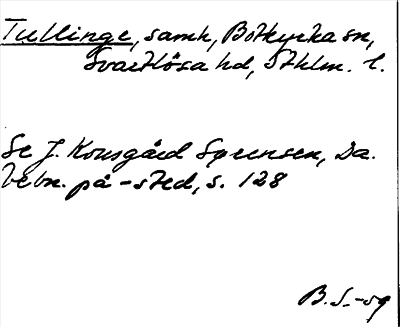 Tullinge, samh, Botkyrka sn,
Svartlösa hd, Sthlm. l.
Se J. Kousgård Sørensen, Da.
bebn. på -sted, s. 128
B. S-59